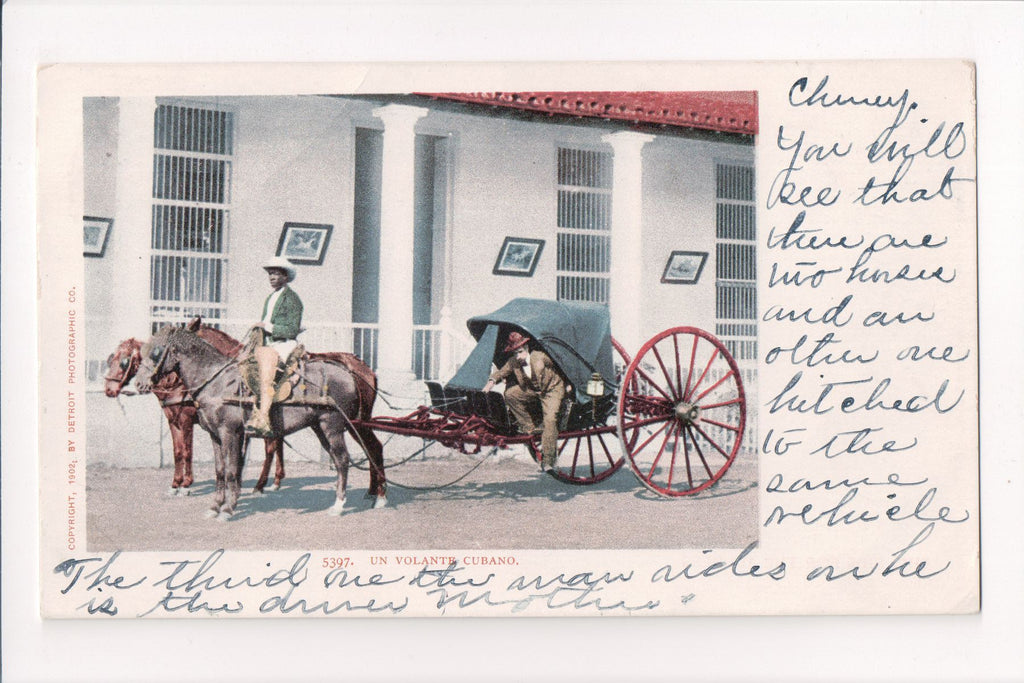 You will
see that
there are
two horses
and an
other one
hitched
to the
same
vehicle
COPYRIGHT, 1902, BY DETROIT PHOTOGRAPHIC CO.
5397. UN VOLANTE CUBANO.
The third one the man rides on he
is the driver Mother